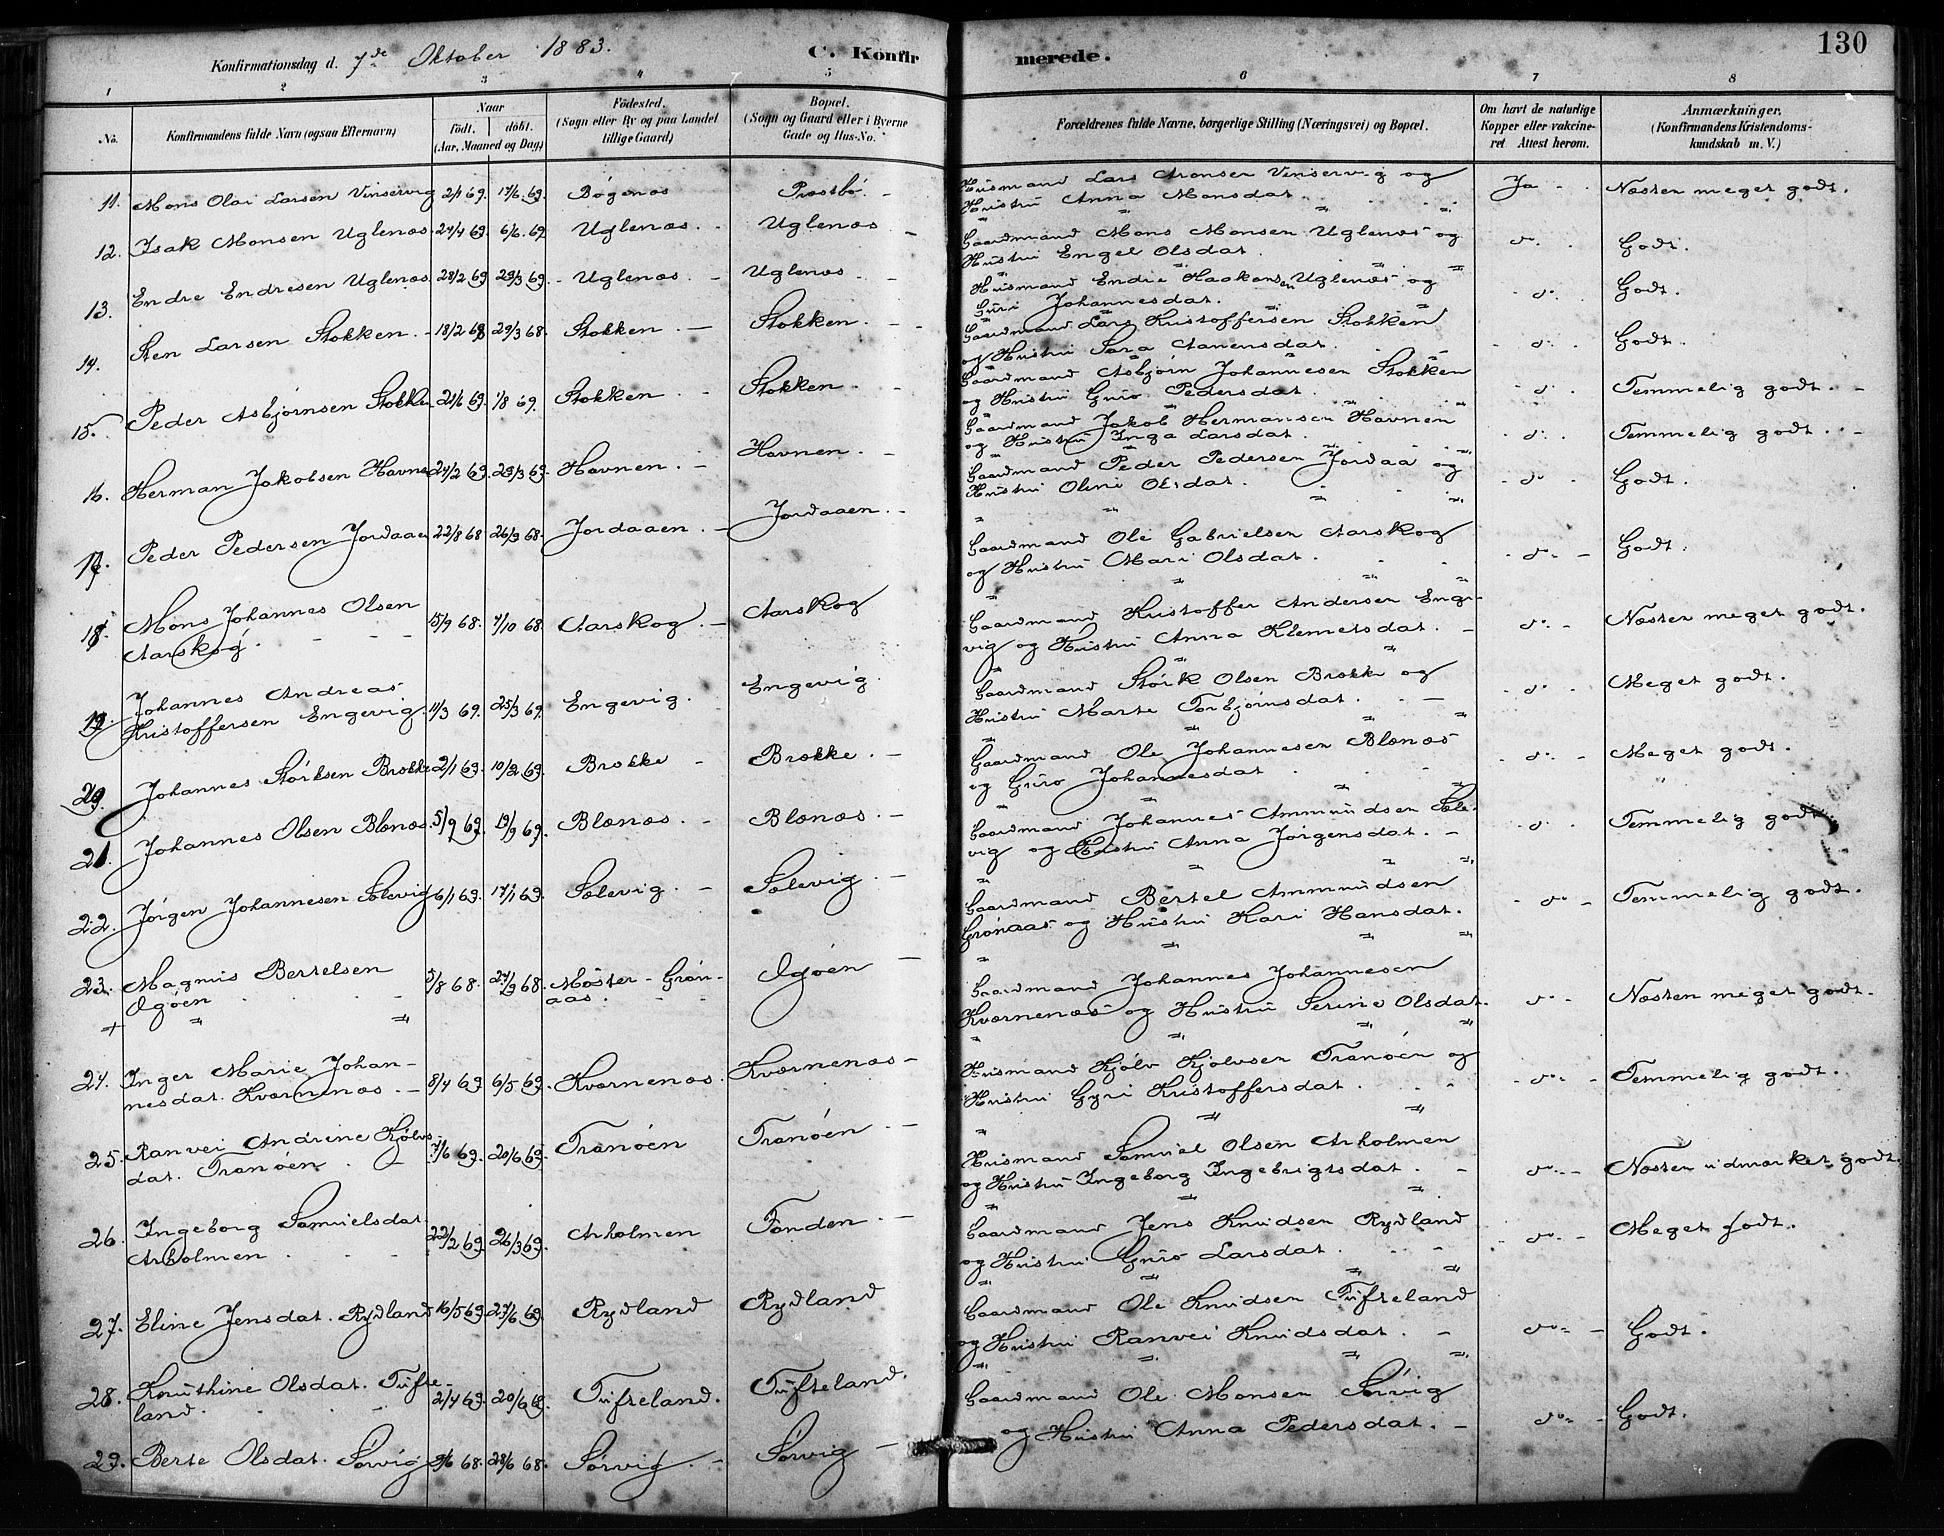 130
Konfirmationsdag d. 7de Oktober 1883.
C. Konfirmerede.
1 2 3 4 5 6 7 8
No.
Konfirmandens fulde Navn (ogsaa Efternavn)
Naar
Födt. döbt.
(Aar, Maaned og Dag)
Födested.
(Sogn eller By og paa Landet
tillige Gaard)
Bopæl.
(Sogn og Gaard eller i Byerne
Gade og Hus-No.
Forældrenes fulde Navne, borgerlige Stilling (Næringsvei) og Bopæl.
Om havt de naturlige
Kopper eller vakcine-
ret. Attest herom.
Anmærkninger.
(Konfirmandens Kristendoms-
kundskab m. V.)
11. Mons Olai Larsen Vinservig 2/1 69. 17/6 69. Bøgenæs Præstbö.
Husmand Lars Aronsen Vinservig og
Hustru Anna Monsdat.
Ja Næsten meget godt.
12. Isak Monsen Uglenæs 24/4 69. 6/6 69 Uglenæs. Uglenæs
Gaardmand Mons Monsen Uglenæs og
Hustru Engel Olsdat.
do. Godt.
13. Endre Endresen Uglenæs. 28/2 69 29/3 69. Uglenæs. Uglenæs
Husmand Endre Haakonsen Uglenæs og
Guri Johannesdat.
do. Godt.
14. Sten Larsen Stokken. 18/2 68 29/3 68. Stokken. Stokken.
Gaardmand Lars Kristoffersen Stokken
og Hustru Sara Aanensdat.
do. Godt.
15. Peder Asbjørnsen Stokken 21/6 69. 1/8 69. Stokken. Stokken.
Gaardmand Asbjørn Johannesen Stokken
og Hustru Guro Pedersdat.
do. Temmelig godt.
16. Herman Jakobsen Havnen 24/2 69. 29/3 69. Havnen. Havnen.
Gaardmand Jakob Hermansen Havnen
og Hustru Inga Larsdat.
do. Temmelig godt.
17. Peder Pedersen Jordaaen 22/8 68 26/9 68. Jordaaen. Jordaaen.
Gaardmand Peder Pedersen Jordaa og
Hustru Oline Olsdat.
do Godt.
18. Mons Johannes Olsen
Aarskog. 15/9 68. 4/10 68. Aarskog. Aarskog
Gaardmand Ole Gabrielsen Aarskog
og Hustru Mari Olsdat.
do. Godt.
19. Johannes Andreas
Kristoffersen Engevig. 11/3 69. 25/3 69. Engevig. Engevig.
Gaardmand Kristoffer Andersen Enge-
vig og Hustru Anna Klemetsdat.
do. Næsten meget godt.
20. Johannes Störksen Brække 2/1 69. 10/2 69. Brække Brække.
Gaardmand Störk Olsen Brække og
Hustru Marte Torbjørnsdat.
do. Meget godt.
21. Johannes Olsen Blænæs. 5/9 69. 19/9 69. Blænæs. Blænæs.
Gaardmand Ole Johannesen Blænæs
og Guro Johannesdat
do. Meget godt.
22. Jørgen Johannesen Sølevig 6/1 69. 17/1 69. Sølevig. Sølevig
Gaardmand Johannes Ammundsen Søle-
vig og Hustru Anna Jørgensdat.
do. Temmelig godt.
23. Magnus Bertelsen
Ogøen 5/8 68. 27/9 68. Møster - Grøn-
aas. Ogøen
Gaardmand Bertel Ammundsen
Grønaas og Hustru Kari Hansdat.
do Temmelig godt.
24. Inger Marie Johan-
nesdat. Kværnenæs 8/4 69 6/5 69. Kværnenæs. Kværnenæs
Gaardmand Johannes Johannesen
Kværnenæs og Hustru Serine Olsdat.
do Næsten meget godt.
25. Ranvei Andrine Kjølvs-
dat. Tranøen 7/6 69. 20/6 69. Tranøen Tranøen
Husmand Kjølv Kjølvsen Tranøen og
Hustru Gyri Kristoffersdat.
do. Temmelig godt.
26. Ingeborg Samuelsdat.
Arholmen 22/2 69. 26/3 69. Arholmen Fonden.
Husmand Samuel Olsen Arholmen
og Hustru Ingeborg Ingebrigtsdat.
do. Næsten udmærket godt.
27. Eline Jensdat. Rydland 16/5 69. 27/6 69. Rydland Rydland
Gaardmand Jens Knudsen Rydland
og Hustru Guro Larsdat.
do. Meget godt.
28. Knuthine Olsdat. Tufte-
land. 2/4 69. 20/6 69. Tufteland. Tufteland.
Gaardmand Ole Knudsen Tufteland
og Hustru Ranvei Knudsdat.
do. Godt.
29. Berte Olsdat. Sørvig 9/6 68. 28/6 68. Sørvig. Sørvig
Gaardmand Ole Monsen Sørvig
og Hustru Anna Pedersdat.
do. Godt.